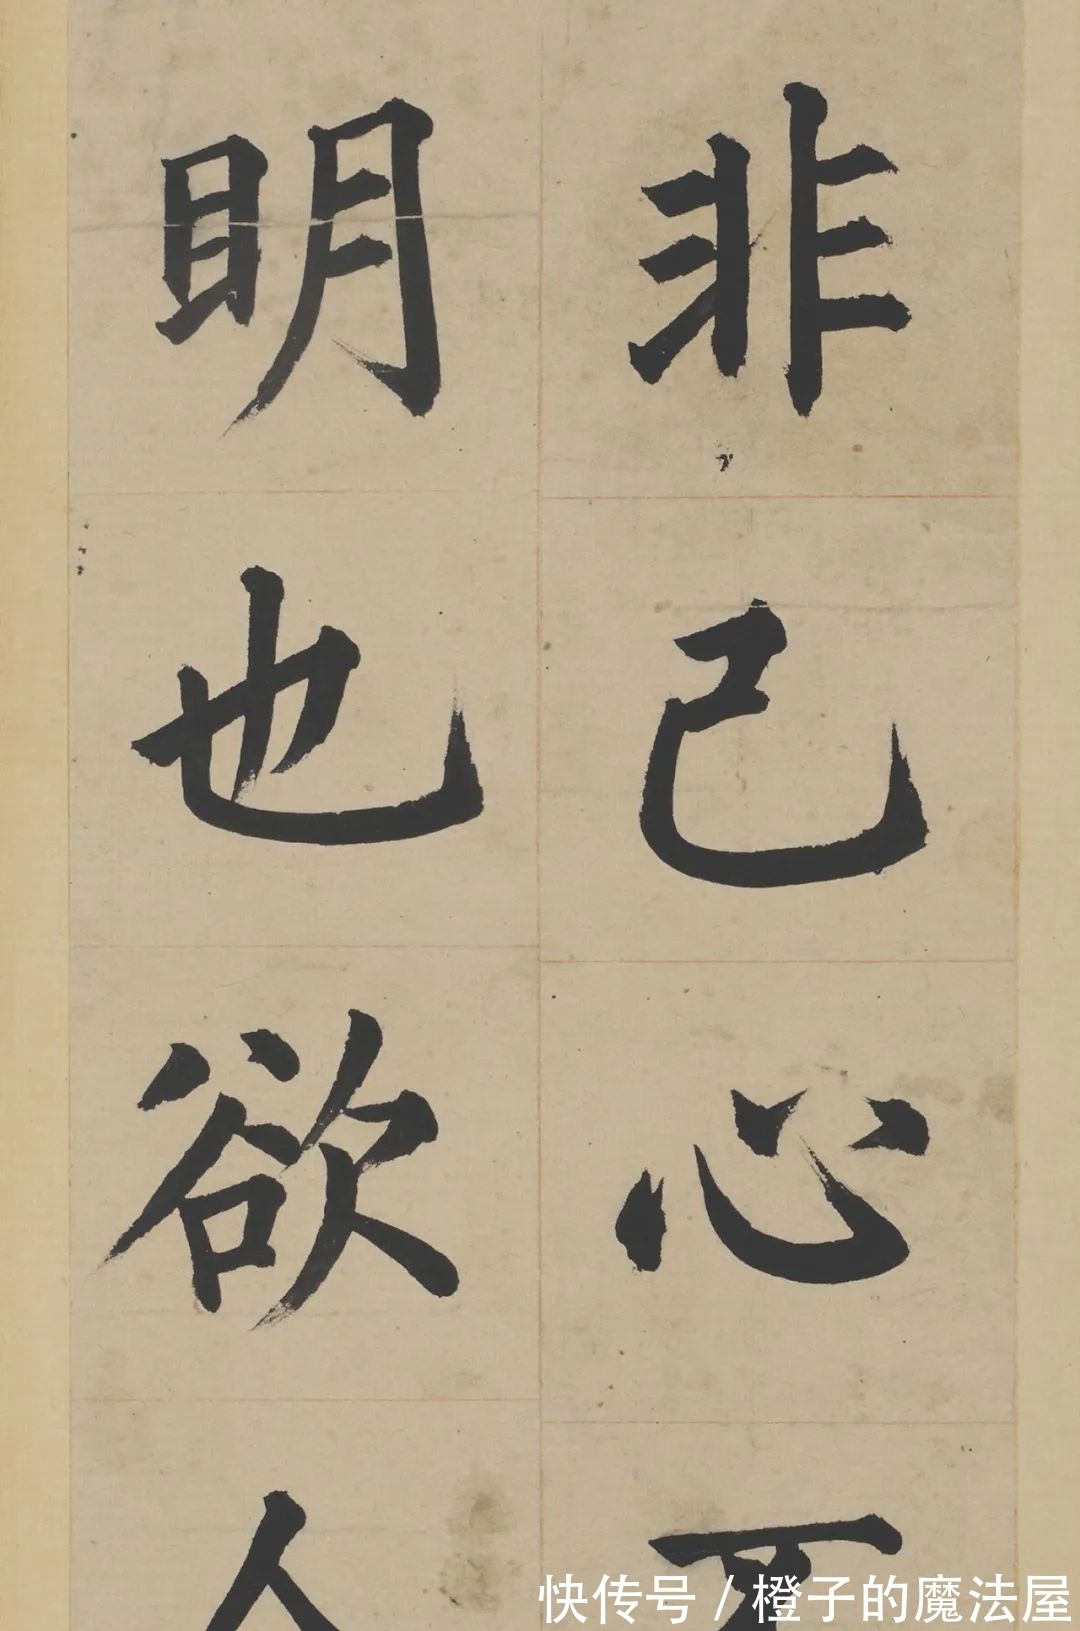 非己心
明也欲人
快传号 / 橙子的魔法屋